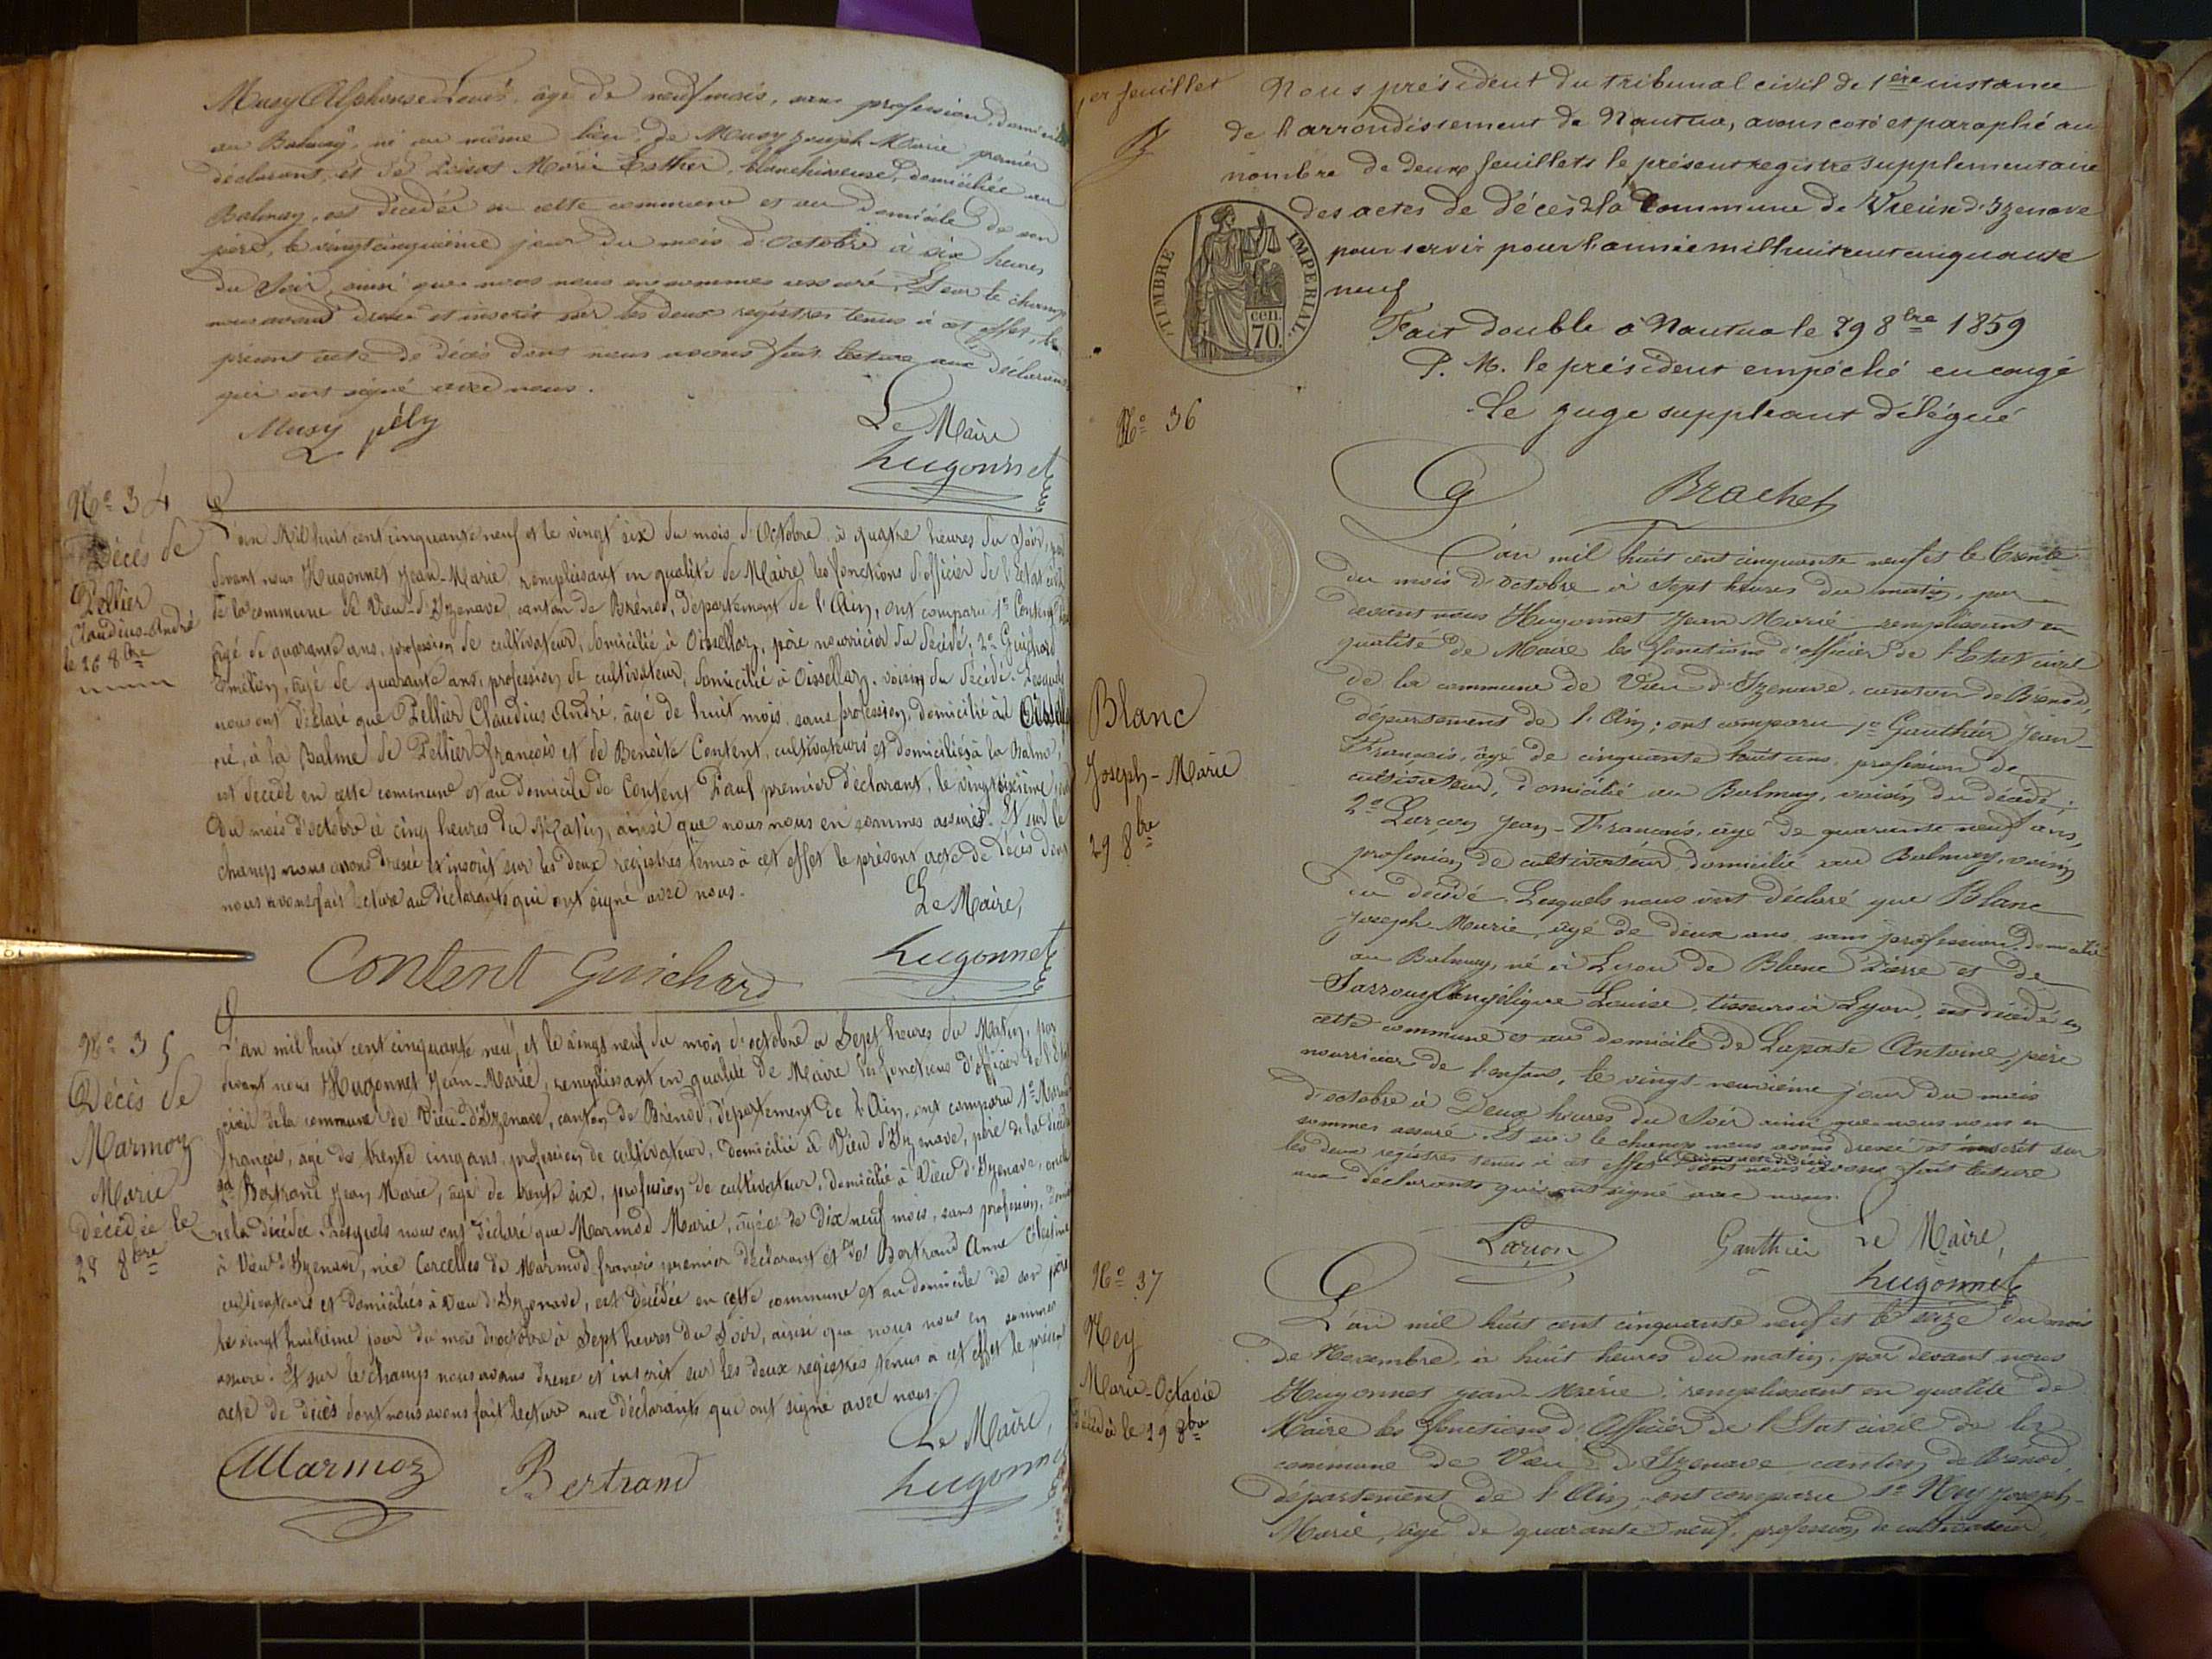 Musy Alphonse Louis, âgé de neuf mois, sans profession, domicilié
au Balmay, né au même lieu de Musy Joseph Marie premier
déclarant, et de Marie Esther, blanchisseuse, domiciliée au
Balmay, est décédé en cette commune et au domicile de son
père, le vingt cinquième jour du mois d'octobre à six heures
du soir, ainsi que nous nous en sommes assuré. Et sur le champ
nous avons dressé et inscrit sur les deux registres tenus à cet effet, le
présent acte de décès dont nous avons fait lecture aux déclarants
qui ont signé avec nous.
Musy Le Maire
hugonnet
No 34
Décès de
Pellier
Claudius-André
le 26 8bre
L'an Mil huit cent cinquante neuf et le vingt six du mois d'Octobre à quatre heures du soir, par
devant nous Hugonnet Jean-Marie, remplissant en qualité de Maire les fonctions d'officier de l'Etat civil
de la commune de Vieu-d'Izenave, canton de Brénod, département de l'Ain, ont comparu 1o Content
âgé de quarante ans, profession de cultivateur, domicilié à Oissellaz, père nourricier du décédé, 2o Guichard
Emélien, âgé de quarante ans, profession de cultivateur, domicilié à Oissellaz, voisin du décédé. Lesquels
nous ont déclaré que Pellier Claudius André, âgé de huit mois, sans profession, domicilié à
né, à la Balme de Pellier françois et de Benoite Content, cultivateurs et domiciliés à la Balme,
est décédé en cette commune et au domicile de Content Paul premier déclarant, le vingt sixième
du mois d'octobre à cinq heures du Matin, ainsi que nous nous en sommes assurés. Et sur le
champ nous avons dressé et inscrit sur les deux registres tenus à cet effet le présent acte de décès dont
nous avons fait lecture au déclarants qui ont signé avec nous.
Le Maire,
Content Guichard hugonnet
No 35
Décès de
Marmoz
Marie
décédée le
28 8bre
L'an mil huit cent cinquante neuf et le vingt neuf du mois d'octobre à Sept heures du Matin, par
devant nous Hugonnet Jean-Marie, remplissant en qualité de Maire les fonctions d'officier de l'Etat
civil de la commune de Vieu-d'Izenave, canton de Brénod, département de l'Ain, ont comparu 1o
françois, âgé de trente cinq ans, profession de cultivateur, domicilié à Vieu d'Izenave, père de la décédée
2o Bertrand Jean Marie, âgé de trente six, profession de cultivateur, domicilié à Vieu d'Izenave, oncle
de la décédée. Lesquels nous ont déclaré que Marmod Marie, âgée de dix neuf mois, sans profession,
à Vieu d'Izenave, née Corcelles de Marmod françois premier déclarant et de Bertrand Anne
cultivateurs et domiciliés à Vieu d'Izenave, est décédée en cette commune et au domicile de son père
le vingt huitième jour du mois d'octobre à Sept heures du Soir, ainsi que nous nous en sommes
assuré. Et sur le champ nous avons dressé et inscrit sur les deux registres tenus à cet effet le présent
acte de décès dont nous avons fait lecture aux déclarants qui ont signé avec nous.
Le Maire,
Marmoz Bertrand hugonnet
1er feuillet
Nous président du tribunal civil de 1ère instance
de l'arrondissement de Nantua, avons coté et paraphé au
nombre de deux feuillets le présent registre supplementaire
des actes de décès de la Commune de Vieu d'Izenave
pour servir pour l'année mil huit cent cinquante
neuf
TIMBRE IMPERIAL.
cen.
70.
Fait double à Nantua le 29 8bre 1859
P. M. le président empêché en congé
Le juge suppléant délégué
Brachet
No 36
Blanc
Joseph-Marie
29 8bre
L'an mil huit cent cinquante neuf et le trente
du mois d'octobre à Sept heures du matin, par
devant nous Hugonnet Jean Marie remplissant en
qualité de Maire les fonctions d'officier de l'Etat civil
de la commune de Vieu-d'Izenave, canton de Brenod,
département de l'Ain; ont comparu 1o Gauthier Jean-
François, âgé de cinquante huit ans, profession de
cultivateur, domicilié au Balmay, voisin du décédé;
2o Larçon Jean-François, âgé de quarante neuf ans,
profession de cultivateur, domicilié au Balmay, voisin
du décédé. Lesquels nous ont déclaré que Blanc
Joseph Marie, âgé de deux ans, sans profession, domicilié
au Balmay, né à Lyon de Blanc Pierre et de
Angélique Louise, tisseurs à Lyon, est décédé en
cette commune et au domicile de Antoine, père
nourricier de l'enfant, le vingt-neuvième jour du mois
d'octobre à Deux heures du Soir ainsi que nous nous en
sommes assuré. Et sur le champ nous avons dressé et inscrit sur
les deux registres tenus à cet effet le présent acte de décès dont nous avons fait lecture
aux déclarants qui ont signé avec nous.
Larçon Gauthier Le Maire,
hugonnet
No 37
Ney
Marie-Octavie
L'an mil huit cent cinquante neuf et le seize du mois
de Novembre, à huit heures du matin, par devant nous
Hugonnet Jean-Marie, remplissant en qualité de
Maire les fonctions d'Officier de l'Etat civil de la
commune de Vieu-d'Izenave canton de Brénod,
département de l'Ain, ont comparu 1o Ney Joseph-
Marie, âgé de quarante-neuf, profession de cultivateur,